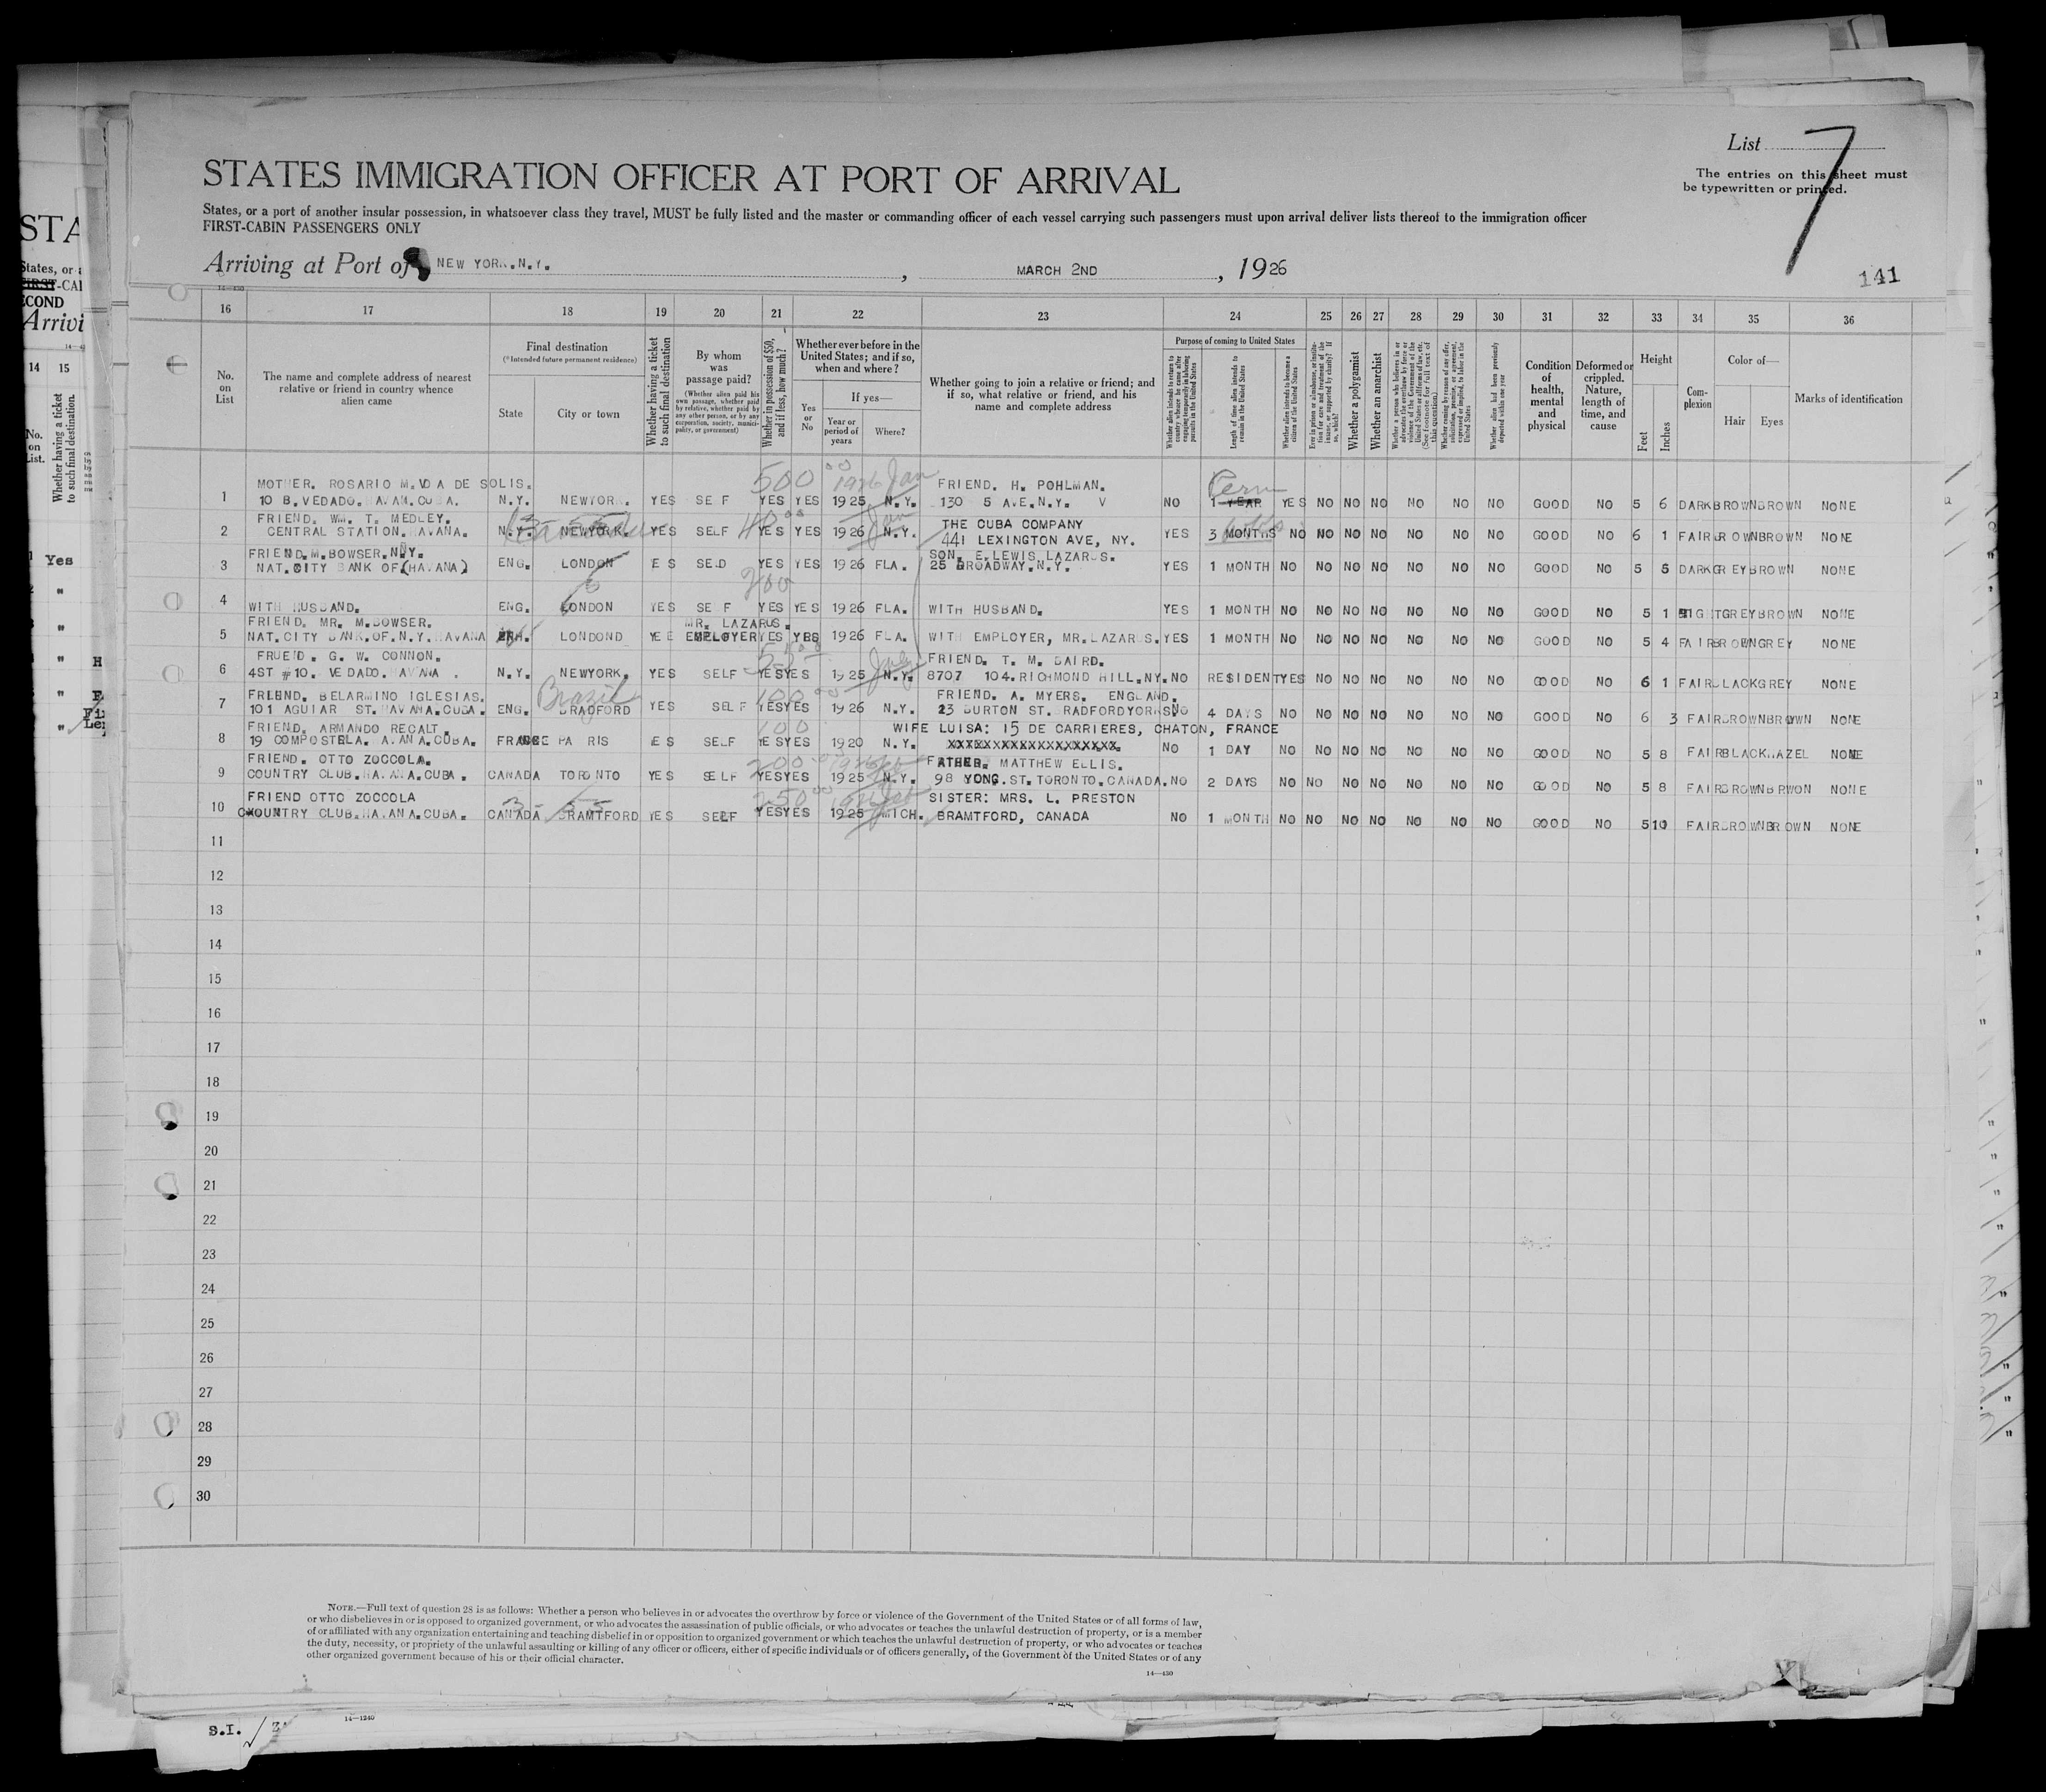 List 7
The entries on this sheet must
be typewritten or printed.
STATES IMMIGRATION OFFICER AT PORT OF ARRIVAL
States, or a port of another insular possession, in whatsoever class they travel, MUST be fully listed and the master or commanding officer of each vessel carrying such passengers must upon arrival deliver lists thereof to the immigration officer
FIRST-CABIN PASSENGERS ONLY
Arriving at Port of NEW YORK.N.Y. , MARCH 2ND , 1926
141
16 17 18 19 20 21 22 23 24 25 26 27 28 29 30 31 32 33 34 35 36
No. on List
The name and complete address of nearest relative or friend in country whence alien came
Final destination
(*Intended future permanent residence)
State
City or town
Whether having a ticket to such final destination
By whom was passage paid?
(Whether alien paid his own passage, whether paid by relative, whether paid by any other person, or by any corporation, society, municipality, or government)
Whether in possession of $50, and if less, how much?
Whether ever before in the United States; and if so, when and where?
Yes or No
If yes—
Year or period of years
Where?
Whether going to join a relative or friend; and if so, what relative or friend, and his name and complete address
Purpose of coming to United States
Whether alien intends to return to country whence he came after engaging temporarily in laboring pursuits in the United States
Length of time alien intends to remain in the United States
Whether alien intends to become a citizen of the United States
Ever in prison or almshouse, or institution for care and treatment of the insane, or supported by charity? If so, which?
Whether a polygamist
Whether an anarchist
Whether a person who believes in or advocates the overthrow by force or violence of the Government of the United States or all forms of law, etc. (See footnote for full text of this question.)
Whether coming by reason of any offer, solicitation, promise, or agreement, expressed or implied, to labor in the United States
Whether alien had been previously deported within one year
Condition of health, mental and physical
Deformed or crippled. Nature, length of time, and cause
Height
Feet
Inches
Complexion
Color of—
Hair
Eyes
Marks of identification
500 00 1926 Jan Perm
MOTHER. ROSARIO M.VDA DE SOLIS. FRIEND. H. POHLMAN.
1 10 8.VEDADO.HAVAN.CUBA. N.Y. NEWYORK. YES SE F YES YES 1925 N.Y. 130 5 AVE.N.Y. V NO 1 YEAR YES NO NO NO NO NO NO GOOD NO 5 6 DARK BROWN BROWN NONE
FRIEND. WM. T. MEDLEY. THE CUBA COMPANY
2 CENTRAL STATION.HAVANA. N.Y. NEWYORK. YES SELF YES YES 1926 N.Y. 441 LEXINGTON AVE, NY. YES 3 MONTHS NO NO NO NO NO NO NO GOOD NO 6 1 FAIR BROWN BROWN NONE
FRIEND.M.BOWSER.NNY. SON. E.LEWIS LAZARUS.
3 NAT.CITY BANK OF(HAVANA) ENG. LONDON E S SELD YES YES 1926 FLA. 25 BROADWAY.N.Y. YES 1 MONTH NO NO NO NO NO NO NO GOOD NO 5 6 DARK GREY BROWN NONE
200
4 WITH HUSBAND. ENG. LONDON YES SE F YES YES 1926 FLA. WITH HUSBAND. YES 1 MONTH NO NO NO NO NO NO NO GOOD NO 5 1 GREY BROWN NONE
FRIEND. MR. M.BOWSER. MR. LAZARUS.
5 NAT.CITY BANK.OF.N.Y.HAVANA LONDOND YE E EMPLOYER YES YES 1926 FLA. WITH EMPLOYER, MR.LAZARUS. YES 1 MONTH NO NO NO NO NO NO NO GOOD NO 5 4 FAIR BROWN GREY NONE
FRUEND. G. W. CONNON. July FRIEND. T. M. BAIRD.
6 4ST #10. VEDADO. HAVANA . N.Y. NEWYORK. YES SELF YES YES 1925 N.Y. 8707 104.RICHMOND HILL.NY. NO RESIDENT YES NO NO NO NO NO NO GOOD NO 6 1 FAIR BLACK GREY NONE
Brazil 100 00
FRIEND. BELARMINO IGLESIAS. FRIEND. A. MYERS. ENGLAND.
7 101 AGUIAR ST.HAVANA.CUBA. ENG. BRADFORD YES SELF YES YES 1926 N.Y. 23 BURTON ST. RADFORDYORKS. NO 4 DAYS NO NO NO NO NO NO NO GOOD NO 6 3 FAIR BROWN BROWN NONE
FRIEND. ARMANDO RECALT. 100 WIFE LUISA: 15 DE CARRIERES, CHATON, FRANCE
8 19 COMPOSTELA. A.ANA.CUBA. FRANCE PA RIS E S SELF YES YES 1920 N.Y. XXXXXXXXXXXXXXXXXXX. NO 1 DAY NO NO NO NO NO NO NO GOOD NO 5 8 FAIR BLACK HAZEL NONE
FRIEND. OTTO ZOCCOLA. 200 FATHER. MATTHEW ELLIS.
9 COUNTRY CLUB.HA.ANA.CUBA. CANADA TORONTO YES SELF YES YES 1925 N.Y. 98 YONG.ST.TORONTO.CANADA. NO 2 DAYS NO NO NO NO NO NO NO GOOD NO 5 8 FAIR BROWN BRWON NONE
FRIEND OTTO ZOCCOLA 250 00 SISTER: MRS. L. PRESTON
10 COUNTRY CLUB.HA.ANA.CUBA. CANADA BRAMTFORD YES SELF YES YES 1925 MICH. BRAMTFORD, CANADA NO 1 MONTH NO NO NO NO NO NO NO GOOD NO 5 10 FAIR BROWN BROWN NONE
11
12
13
14
15
16
17
18
19
20
21
22
23
24
25
26
27
28
29
30
NOTE.—Full text of question 28 is as follows: Whether a person who believes in or advocates the overthrow by force or violence of the Government of the United States or of all forms of law,
or who disbelieves in or is opposed to organized government, or who advocates the assassination of public officials, or who advocates or teaches the unlawful destruction of property, or is a member
of or affiliated with any organization entertaining and teaching disbelief in or opposition to organized government or which teaches the unlawful destruction of property, or who advocates or teaches
the duty, necessity, or propriety of the unlawful assaulting or killing of any officer or officers, either of specific individuals or of officers generally, of the Government of the United States or of any
other organized government because of his or their official character.
14—430
S.I.
14—1240